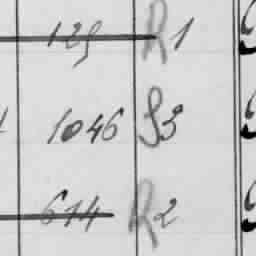 125 R1
1046 S3
614 R2